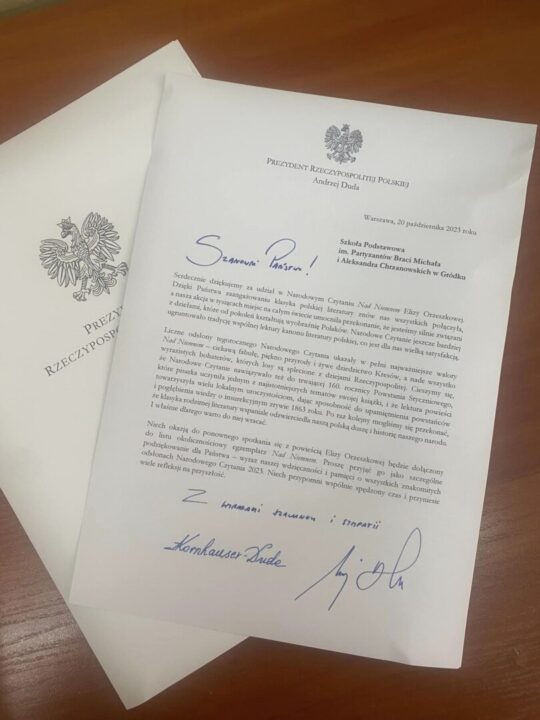 PREZYDENT RZECZYPOSPOLITEJ POLSKIEJ
Andrzej Duda
Warszawa, 20 października 2023 roku
Szkoła Podstawowa
im. Partyzantów Braci Michała
i Aleksandra Chrzanowskich w Gródku
Szanowni Państwo!
Serdecznie dziękujemy za udział w Narodowym Czytaniu Nad Niemnem Elizy Orzeszkowej.
Dzięki Państwa zaangażowaniu klasyka polskiej literatury znów nas wszystkich połączyła,
a nasza akcja w tysiącach miejsc na całym świecie umocniła przekonanie, że jesteśmy silnie związani
z dziełami, które od pokoleń kształtują wyobraźnię Polaków. Narodowe Czytanie jeszcze bardziej
ugruntowało tradycję wspólnej lektury kanonu literatury polskiej, co jest dla nas wielką satysfakcją.
Liczne odsłony tegorocznego Narodowego Czytania ukazały w pełni najważniejsze walory
Nad Niemnem – ciekawą fabułę, piękno przyrody i żywe dziedzictwo Kresów, a nade wszystko
wyrazistych bohaterów, których losy są splecione z dziejami Rzeczypospolitej. Cieszymy się,
że Narodowe Czytanie nawiązywało też do trwającej 160. rocznicy Powstania Styczniowego,
które pisarka uczyniła jednym z najistotniejszych tematów swojej książki, i że lektura powieści
towarzyszyła wielu lokalnym uroczystościom, dając sposobność do upamiętnienia powstańców
i pogłębienia wiedzy o insurekcyjnym zrywie 1863 roku. Po raz kolejny mogliśmy się przekonać,
że klasyka rodzimej literatury wspaniale odzwierciedla naszą polską duszę i historię naszego narodu.
I właśnie dlatego warto do niej wracać.
Niech okazją do ponownego spotkania się z powieścią Elizy Orzeszkowej będzie dołączony
do listu okolicznościowy egzemplarz Nad Niemnem. Proszę przyjąć go jako szczególne
podziękowanie dla Państwa – wyraz naszej wdzięczności i pamięci o wszystkich znakomitych
odsłonach Narodowego Czytania 2023. Niech przypomni wspólnie spędzony czas i przyniesie
wiele refleksji na przyszłość.
Z wyrazami szacunku i sympatii
Kornhauser-Duda